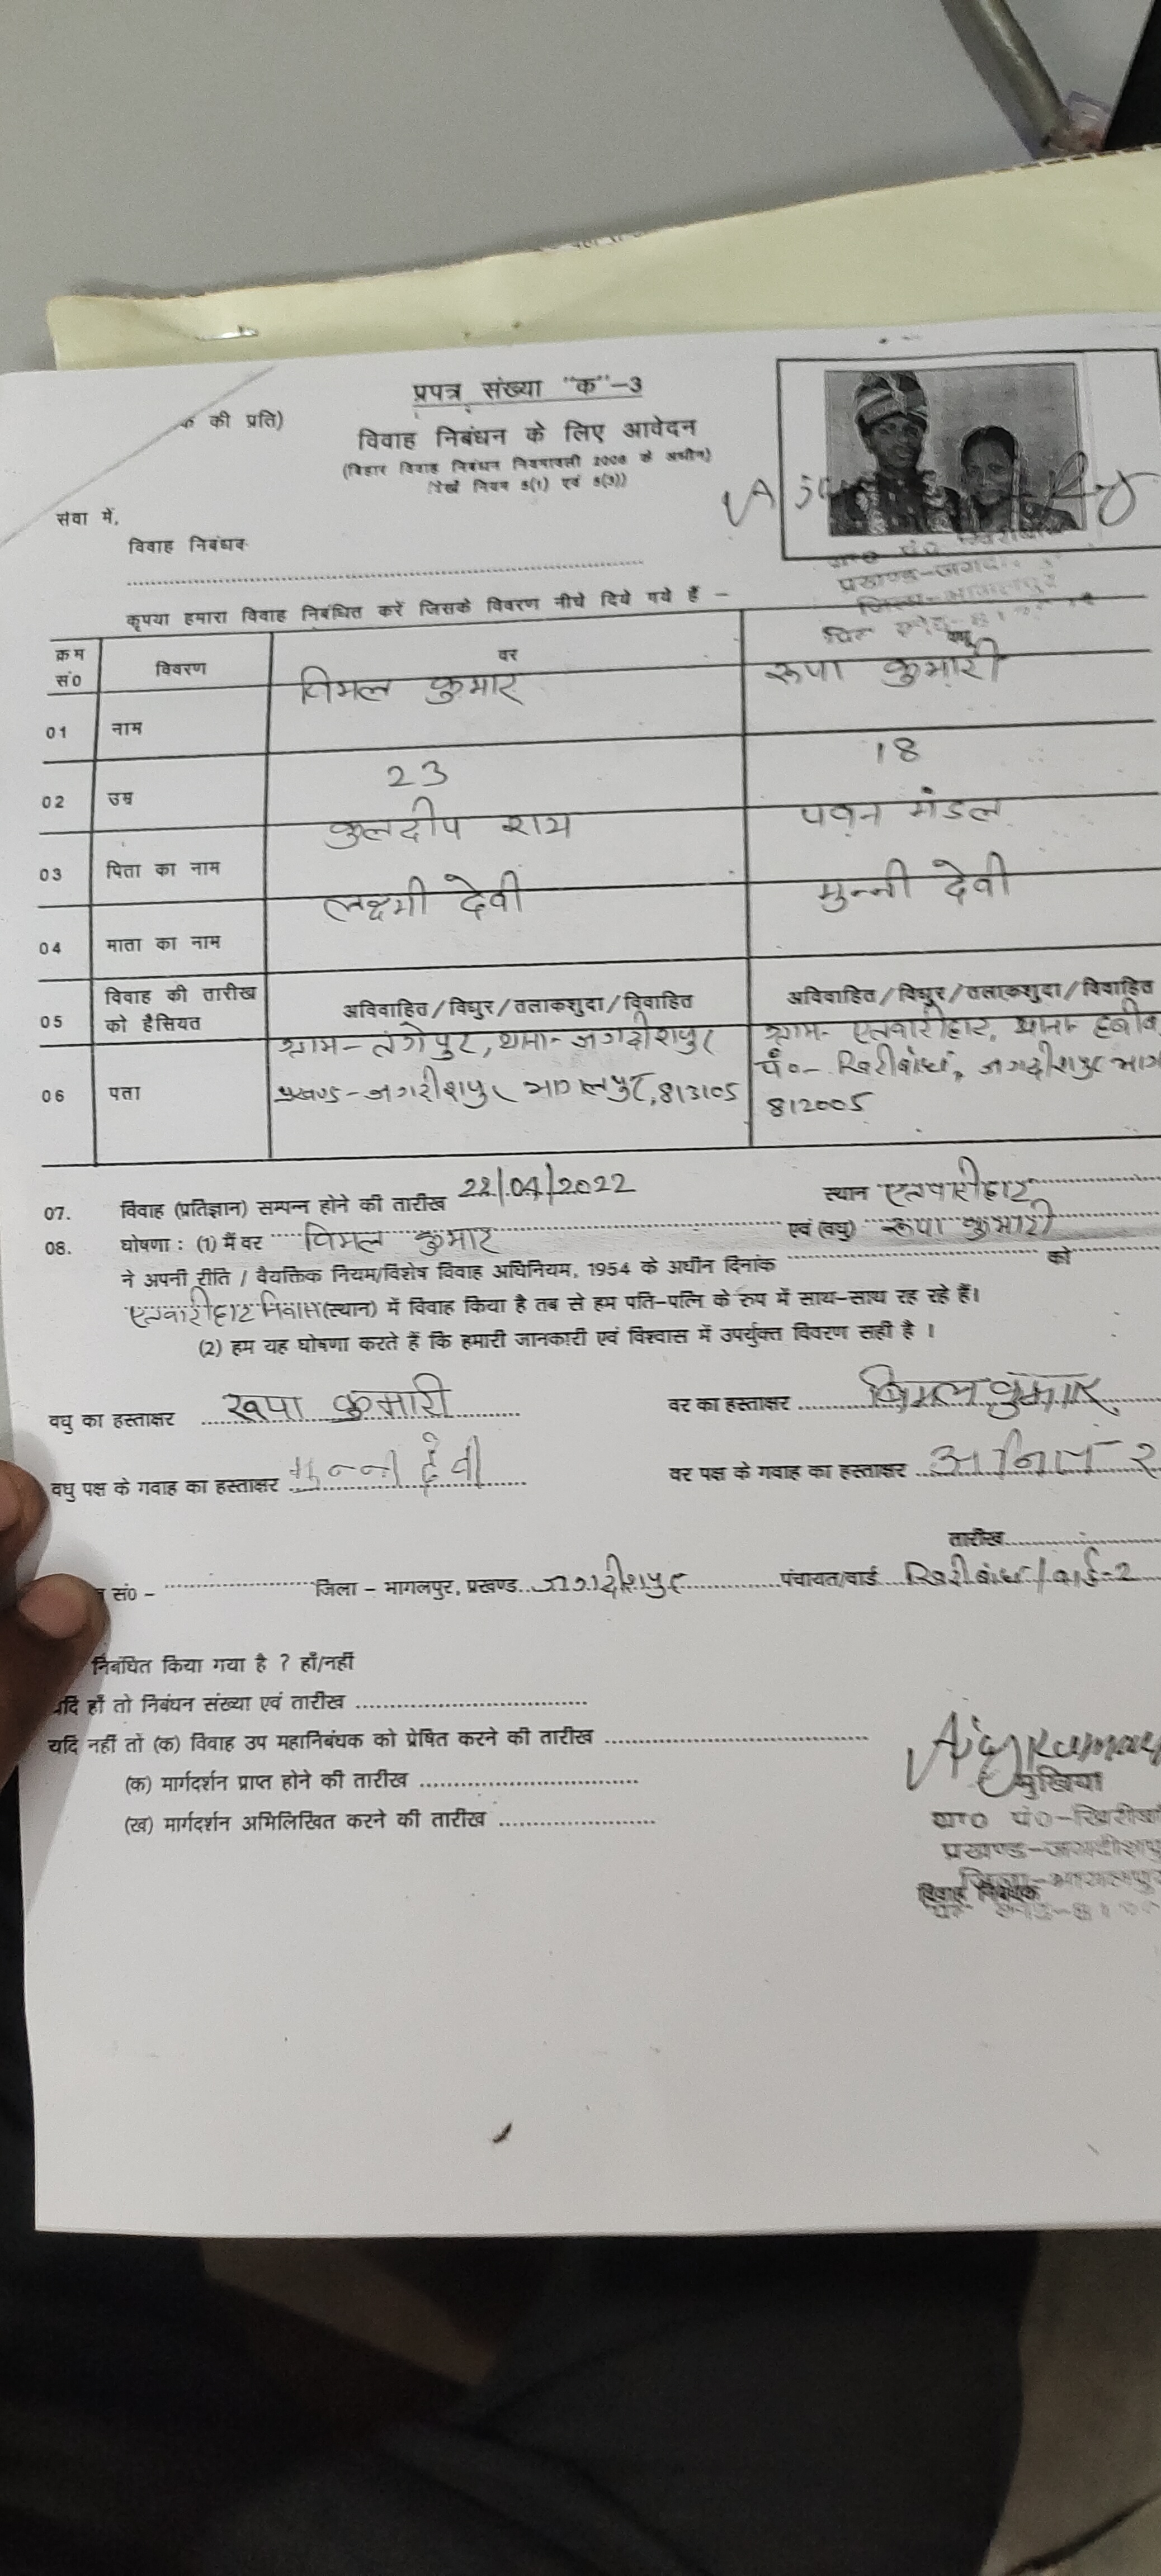 प्रपत्र संख्या "क"-3
की प्रति)
विवाह निबंधन के लिए आवेदन
(बिहार विवाह निबंधन नियमावली 2006 के अधीन)
(देखें नियम 5(1) एवं 5(3))
सेवा में,
विवाह निबंधक
प्रखण्ड-जगदी
जिला-भागलपुर
कृपया हमारा विवाह निबंधित करें जिसके विवरण नीचे दिये गये हैं -
क्रम सं0 विवरण वर वधू
01 नाम विमल कुमार रूपा कुमारी
02 उम्र 23 18
03 पिता का नाम कुलदीप राय पवन मंडल
04 माता का नाम लक्ष्मी देवी मुन्नी देवी
05 विवाह की तारीख को हैसियत अविवाहित/विधुर/तलाकशुदा/विवाहित अविवाहित/विधुर/तलाकशुदा/विवाहित
06 पता ग्राम-तगेपुर, थाना-जगदीशपुर ग्राम- एतवारीहाट, थाना- हबीब
प्रखण्ड-जगदीशपुर भागलपुर, 813105 पं०- खिरीबांध, जगदीशपुर भाग
812005
07. विवाह (प्रतिज्ञान) सम्पन्न होने की तारीख 22/04/2022 स्थान एतवारीहाट
08. घोषणा : (1) मैं वर विमल कुमार एवं (वधु) रूपा कुमारी
ने अपनी रीति / वैयक्तिक नियम/विशेष विवाह अधिनियम, 1954 के अधीन दिनांक को
एतवारीहाट निवास (स्थान) में विवाह किया है तब से हम पति-पत्नि के रुप में साथ-साथ रह रहे हैं।
(2) हम यह घोषणा करते हैं कि हमारी जानकारी एवं विश्वास में उपर्युक्त विवरण सही है ।
वधु का हस्ताक्षर रूपा कुमारी वर का हस्ताक्षर बिमल कुमार
वधु पक्ष के गवाह का हस्ताक्षर मुन्नी देवी वर पक्ष के गवाह का हस्ताक्षर अनिल
तारीख
सं0 - जिला - भागलपुर, प्रखण्ड जगदीशपुर पंचायत/वार्ड खिरीबांध/वार्ड-2
निबंधित किया गया है ? हाँ/नहीं
यदि हाँ तो निबंधन संख्या एवं तारीख
यदि नहीं तों (क) विवाह उप महानिबंधक को प्रेषित करने की तारीख
(क) मार्गदर्शन प्राप्त होने की तारीख
(ख) मार्गदर्शन अभिलिखित करने की तारीख
Ajay Kumar
मुखिया
ग्रा0 पं0-खिरीबां
प्रखण्ड-जगदीशपु
जिला-भागलपुर
विवाह निबंधक